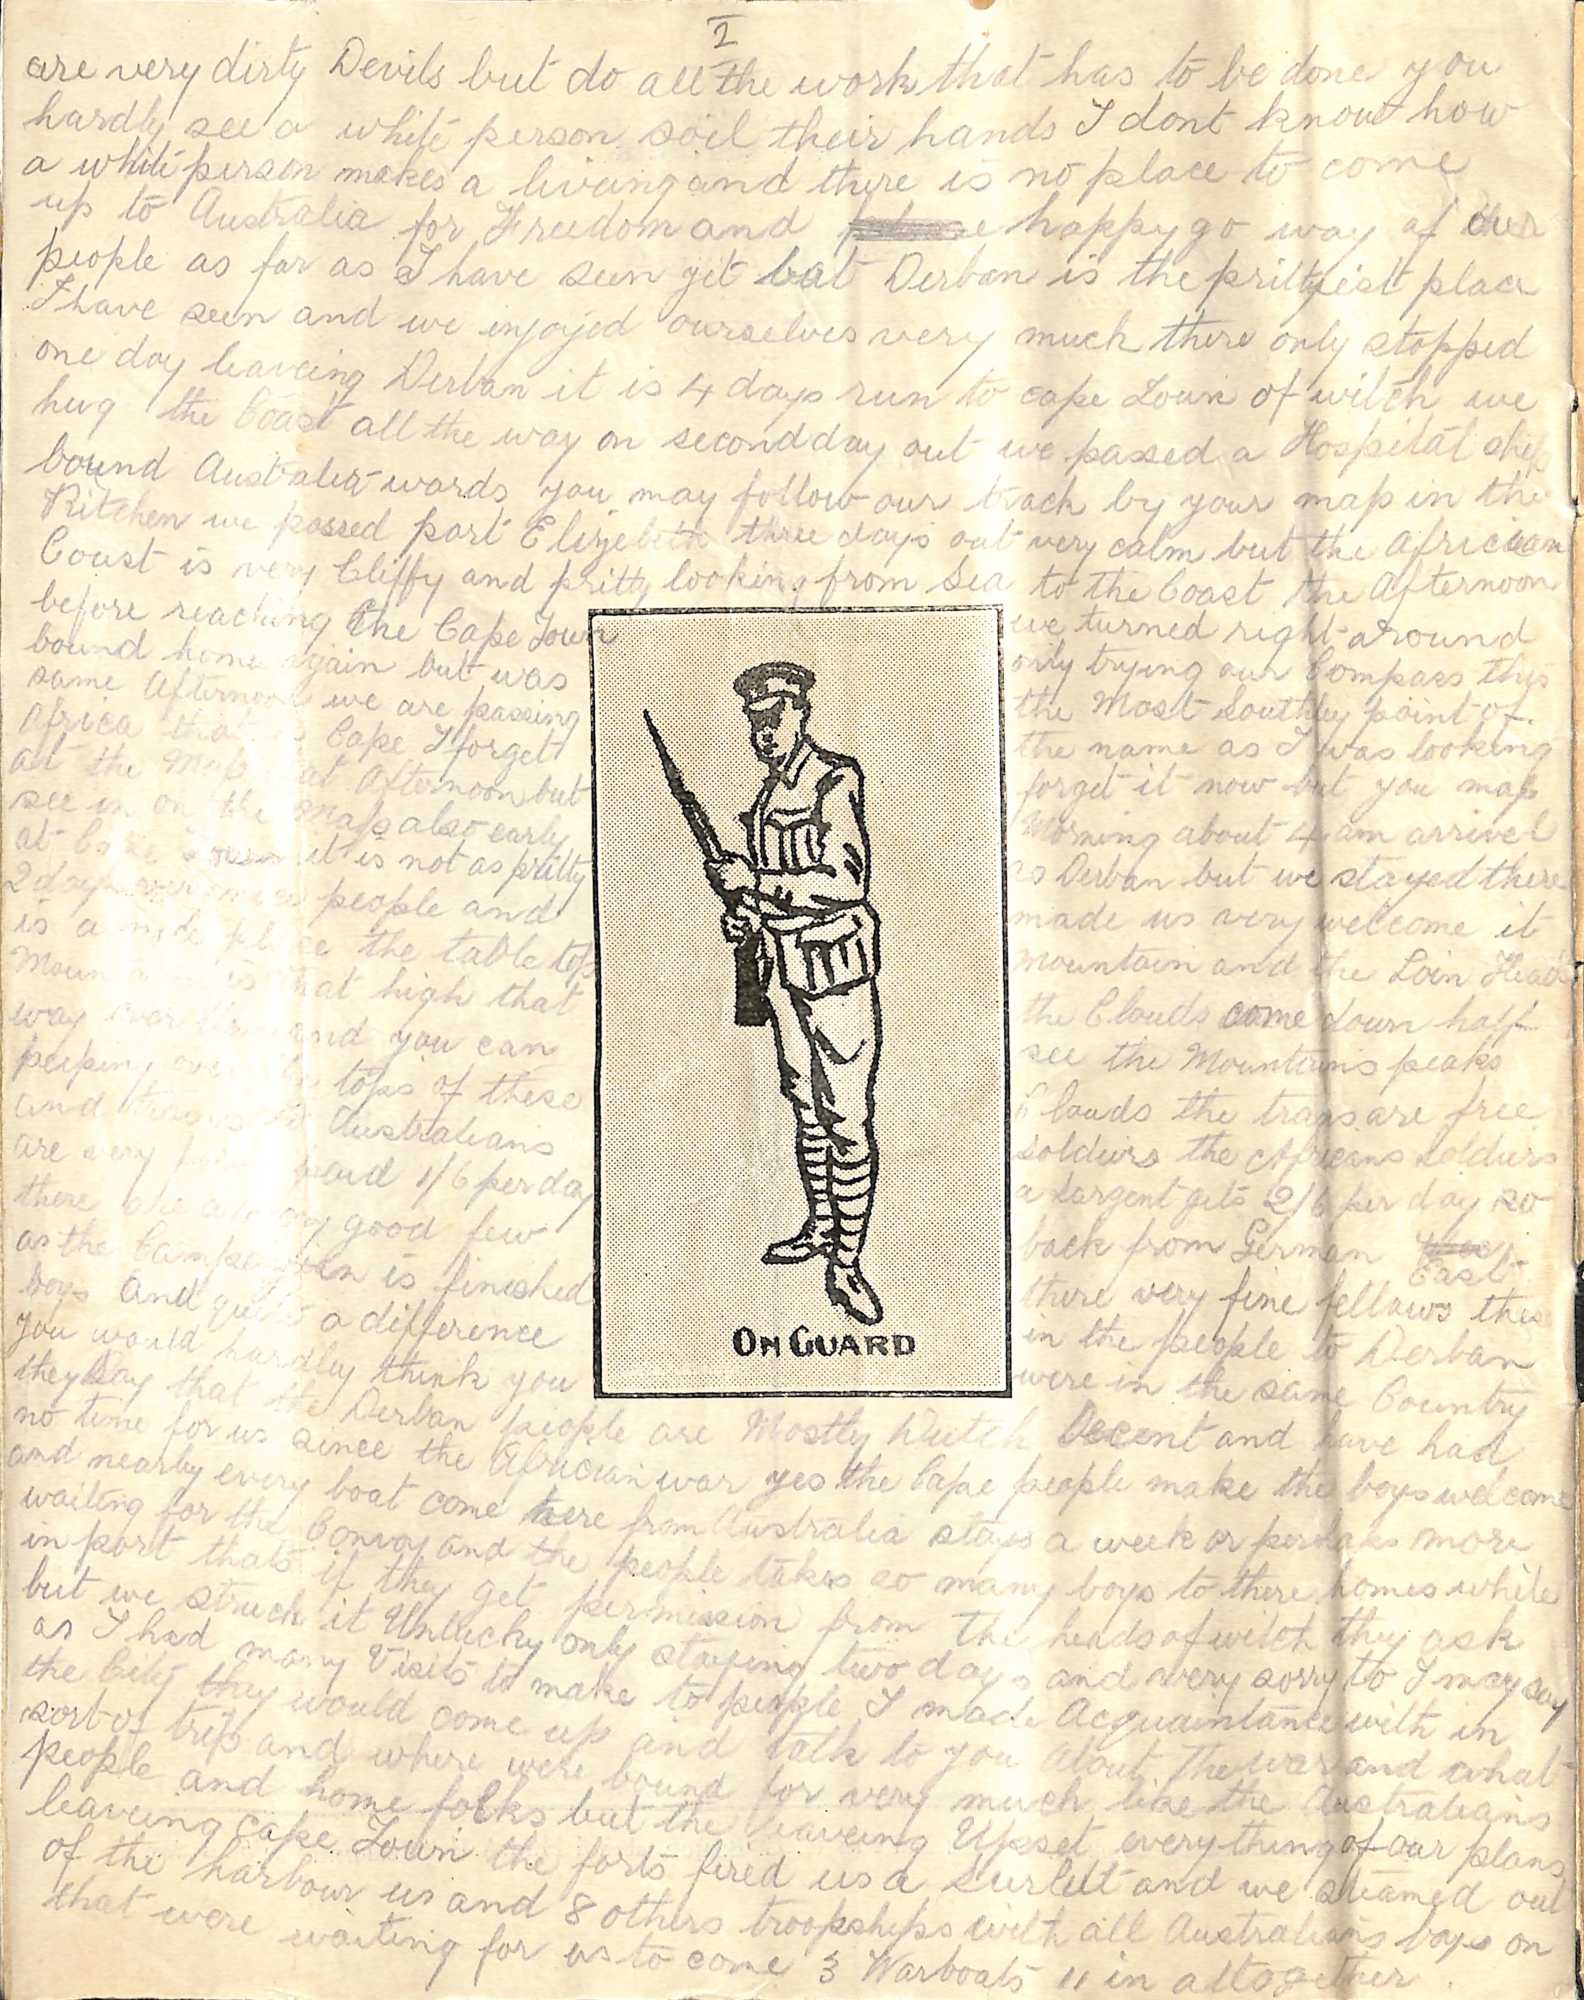 2
are very dirty Devils but do all the work that has to be done you
hardly see a white person soil their hands I dont know how
a white person makes a liveing and there is no place to come
up to Australia for Freedom and happy go way of our
people as far as I have seen yet but Derban is the prittyiest place
I have seen and we enjoyed ourselves very much there only stopped
one day leaveing Derban it is 4 days run to cape Town of witch we
hug the Coast all the way on second day out we passed a Hospital ship
bound Australia-wards you may follow our track by your map in the
Kitchen we passed port Elizebeth three days out very calm but the Africian
Coast is very Cliffy and pritty looking from Sea to the Coast the Afternoon
before reaching the Cape Town we turned right around
bound home again but was only trying our Compass this
same Afternoon we are passing the Most Southley point of
Africa that is Cape I forget the name as I was looking
at the Map that Afternoon but forget it now but you may
see in on the Map also early Morning about 4 am arrivel
at Cape Town it is not as pritty as Derban but we stayed there
2 days people and made us very welcome it
is a nice place the table top Mountain and the Loin Head
Mountain is that high that the Clouds come down half
way and you can see the Mountains peaks
peeping over the tops of these Clouds the trams are free
and Australians soldiers the Africans soldiers
are very paid 1/6 per day a Sargent gets 2/6 per day so
there are a very good few back from German East
as the Campaigen is finished there very fine fellows these
boys And quite a difference in the people to Derban
you would hardly think you were in the same Country
they say that the Derban people are Mostly Dutch Decent and have had
no time for us since the Africian war yes the Cape people make the boys welcome
and nearby every boat come here from Australia stays a week or perhaps more
waiting for the Convoy and the people takes so many boys to there homes while
in port thats if they get permission from the heads of witch they ask
but we struck it Unlucky only staying two days and very sorry to I may say
as I had many Visits to make to people I made Acquaintance with in
the City they would come up and talk to you about The war and what
sort of trip and where were bound for very much like the Australians
people and home folks but the leaveing Upset everything of our plans
leaveing Cape Town the forts fired us a Surlut and we steamed out
of the harbour us and 8 others troopships with all Australians boys on
that were waiting for us to come 3 Warboats 11 in altogether.
ON GUARD